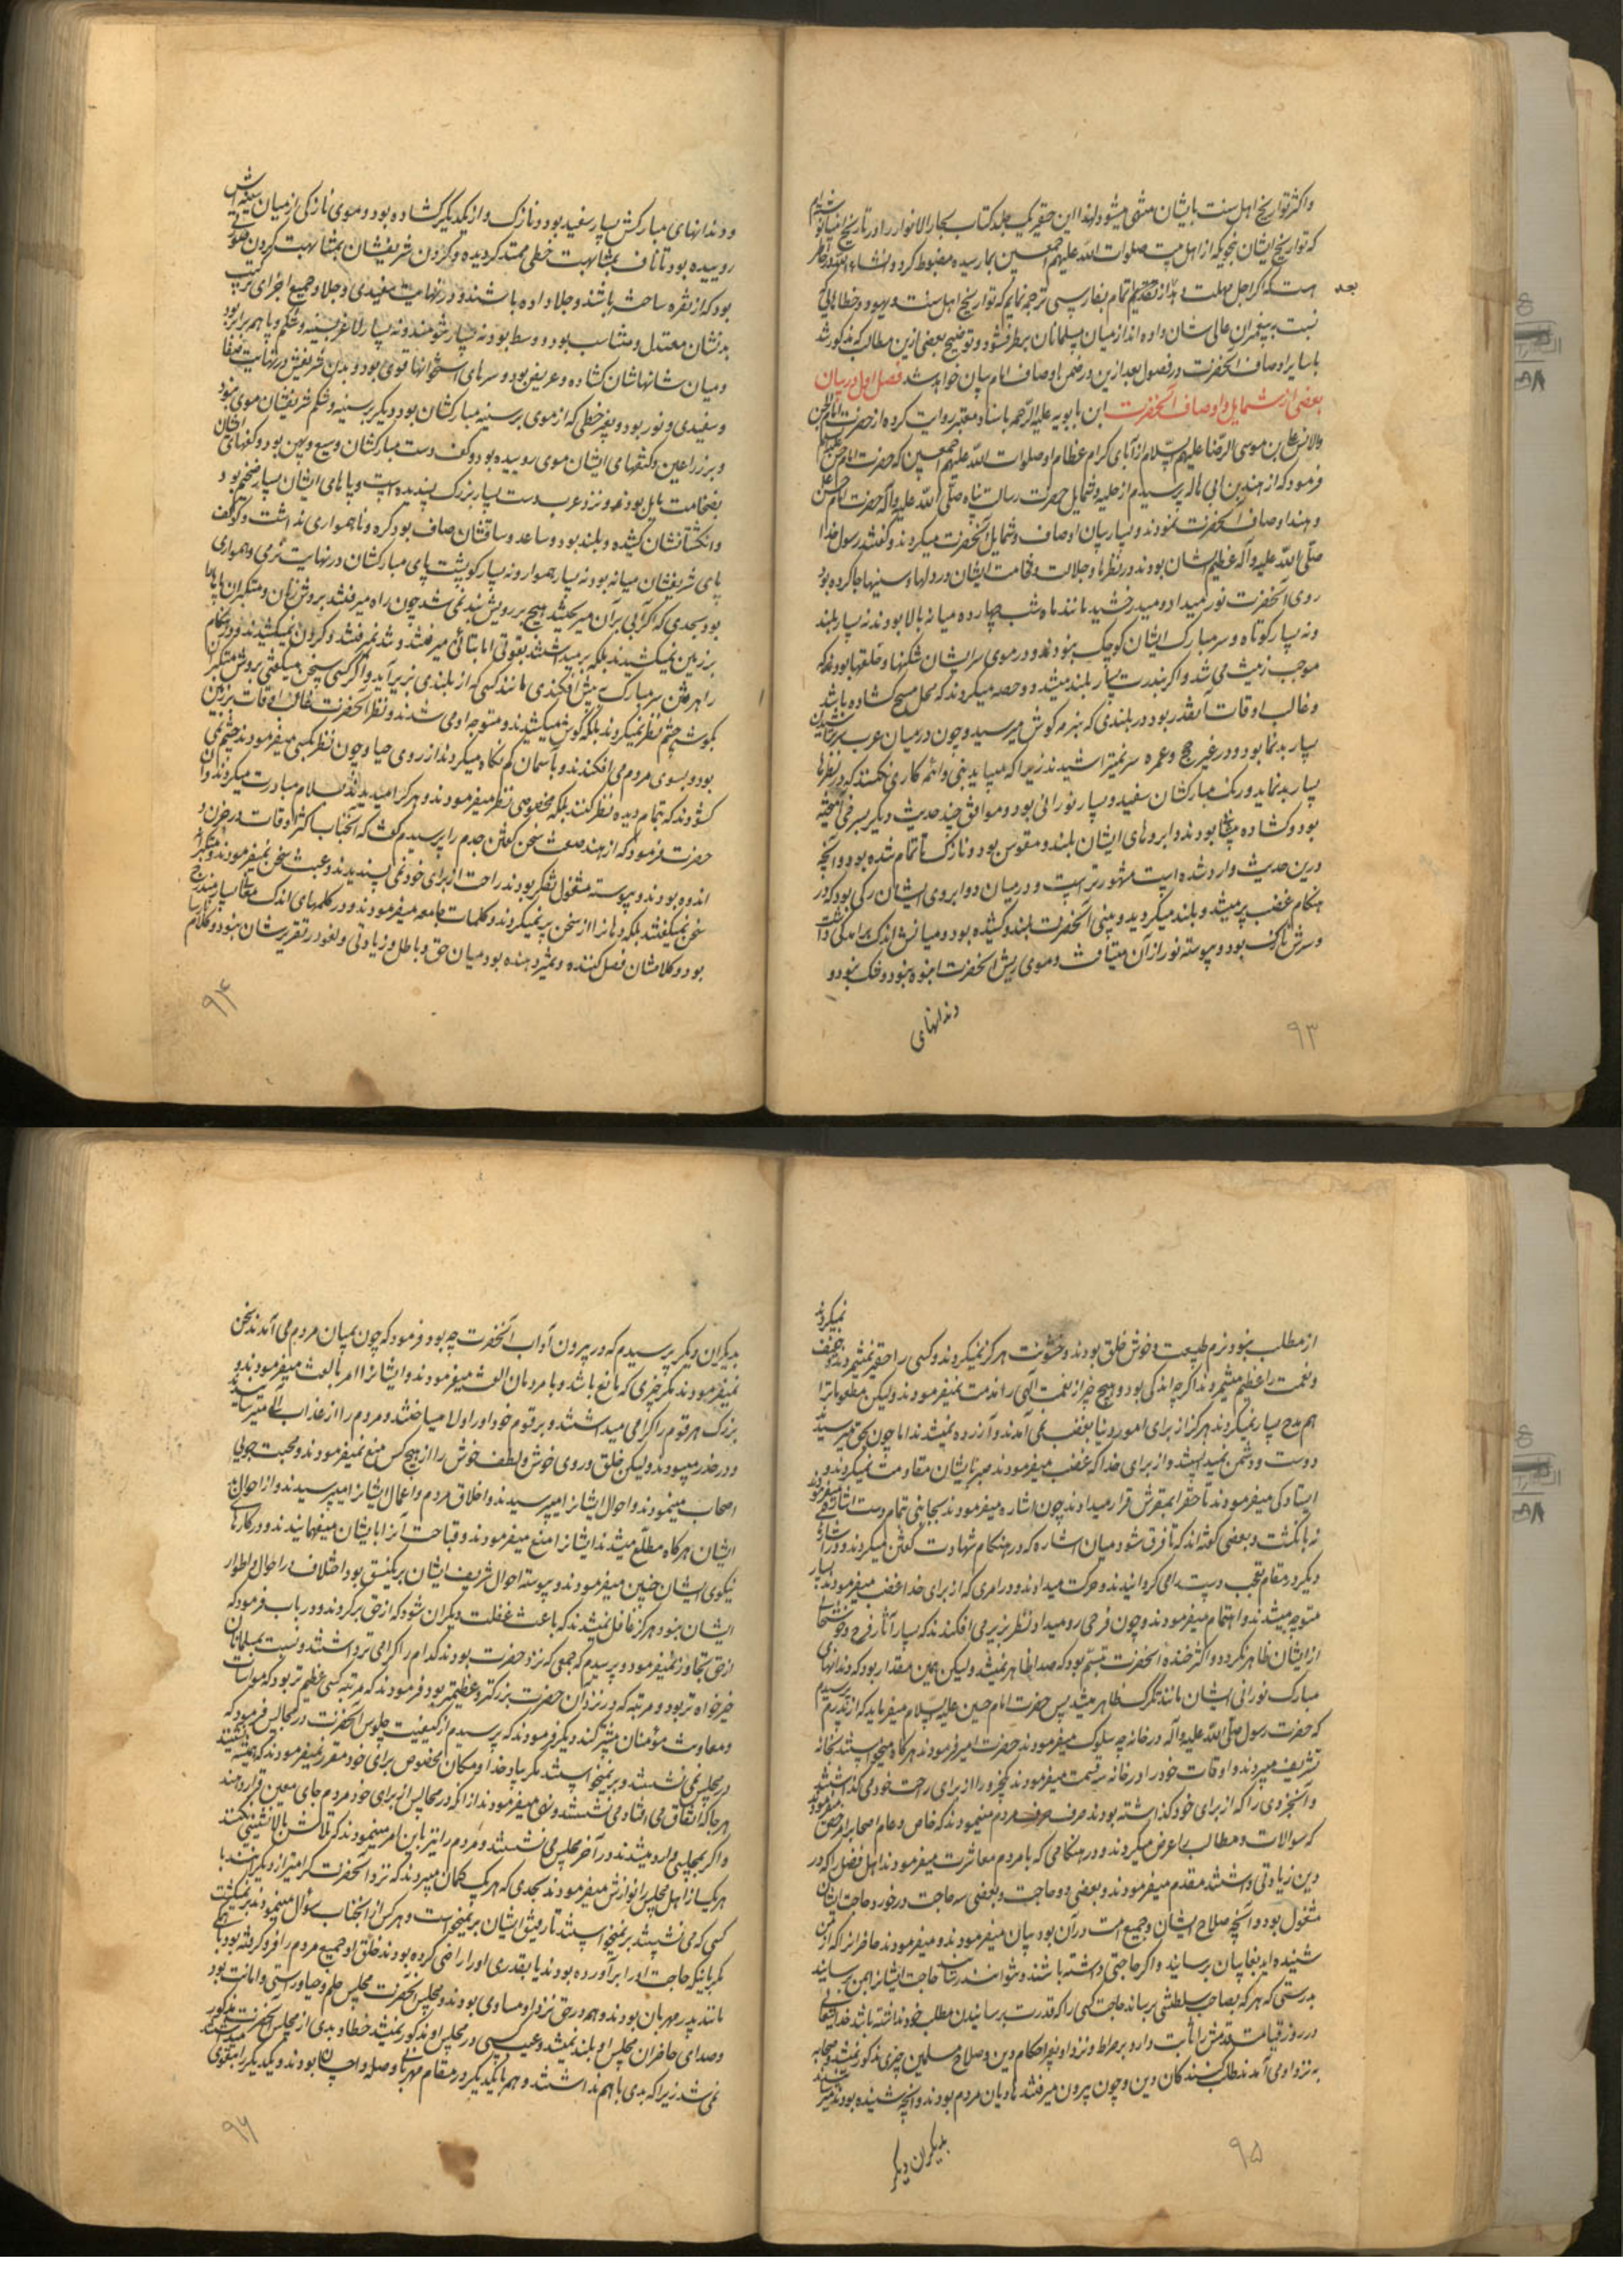 واکثر تواریخ اهل سنت بایشان منتهی میشود لهذا این حقیر یک جلد کتاب بحار الانوار را در تاریخ
که تواریخ ایشان بنحویکه از اهل بیت صلوات الله علیهم اجمعین بما رسیده مضبوط کرد و انشاء الله در خاطر
هست که اگر اجل مهلت دهد تمام بفارسی ترجمه نمایم که تواریخ اهل سنت و یهود و خطاهائی که
بعد
نسبت به پیغمبران عالی شان داده اند از میان مسلمانان برطرف شود و توضیح بعضی ازین مطالب که مذکور شد
با سایر اوصاف آنحضرت در فصول بعد ازین در ضمن اوصاف امام بیان خواهد شد فصل اول در بیان
بعضی از شمایل و اوصاف آنحضرت ابن بابویه علیه الرحمه باسناد معتبر روایت کرده از حضرت امام
والانس علی بن موسی الرضا علیهم السلام از آبای کرام عظام او صلوات الله علیهم اجمعین که حضرت امام حسن
فرمود که از هند بن ابی هاله پرسیدم از حلیه و شمایل حضرت رسالت پناه صلی الله علیه وآله حضرت امام حسن
و هند اوصاف آنحضرت نمودند و بسیار بیان اوصاف و شمایل آنحضرت میکردند و گفتند رسول خدا
صلی الله علیه وآله عظیم الشان بودند در نظرها و جلالت و فخامت ایشان در دلها و سینها جا کرده بود
روی آنحضرت نور میداد و میدرخشید مانند ماه شب چهارده میانه بالا بودند نه بسیار بلند
ونه بسیار کوتاه و سر مبارک ایشان کوچک نبود و در موی سر ایشان شکنها و حلقها بود نه که
موجب زینت می شد و اگر بندرت بسیار بلند میشد دو حصه میکردند که محل مسح گشاده باشد
وغالب اوقات آنقدر بود در بلندی که بنرمه گوش میرسید و چون در میان عرب سر تراشیدن
بسیار بدنما بود و در غیر حج و عمره سر نمیتراشیدند زیرا که میباید نبی و امام کاری نکنند که در نظرها
بسیار بد نماید و رنگ مبارکشان سفید و بسیار نورانی بود و موافق چند حدیث دیگر بسرخی آمیخته
بود و گشاده پیشانی بودند و ابروهای ایشان بلند و مقوس بود و نازک تا تمام شده بود و آنچه
درین حدیث وارد شده است مشهورتر است و در میان دو ابروی ایشان رگی بود که در
هنگام غضب پر میشد و بلند میگردید و بینی آنحضرت بلند و کشیده بود و میانش اندک برآمدگی داشت
وسرش نازک بود و پیوسته نور از آن میتافت و موی ریش آنحضرت انبوه بود و تنک نبود و
دندانهای
۹۳
ودندانهای مبارکش بسیار سفید بود و نازک و از یکدیگر گشاده بود و موی نازکی از میان سینه اش
روییده بود تا ناف بمشابهت خطی ممتد گردیده و گردن شریفشان بمشابهت گردن صورتی
بود که از نقره ساخته باشند و جلا داده باشند و در نهایت سفیدی و جلا و جمیع اجزای ترکیب
بدنشان معتدل و متناسب بود و وسط بود نه بسیار تنومند ونه بسیار لاغر سینه و شکم و با هم برابر بود
ومیان شانهاشان گشاده و عریض بود و سرهای استخوانها قوی بود و بدن شریفش در نهایت صفا
وسفیدی و نور بود و بغیر خطی که از موی بر سینه مبارکشان بود دیگر بر سینه و شکم شریفشان موی نبود
وبر زراعین و کتفهای ایشان موی روییده بود و کف دست مبارکشان وسیع و پهن بود و کفهای ایشان
بضخامت مایل بود و نزد عرب دست بسیار بزرگ پسندیده است و پاهای ایشان بسیار ضخیم بود و
وانگشتانشان کشیده و بلند بود و ساعد و ساقشان صاف بود گره و ناهمواری نداشت و گو کف
پای شریفشان میانه بود نه بسیار هموار ونه بسیار گو پشت پای مبارکشان در نهایت نرمی و همواری
بود بحدی که اگر آبی بر آن میریختند هیچ بر رویش بند نمی شد چون راه میرفتند بروش زنان و متکبران پاها را
بر زمین نمیکشیدند بلکه بر میداشتند بقوتی اما بتانی میرفتند و تند نمیرفتند و گردن نمیکشیدند و در هنگام
راه رفتن سر مبارک به پیش می افکندی مانند کسی که از بلندی بزیر آید و اگر کسی سخن میگفتی بروش متکبران
بگوشه چشم نظر نمیکردند بلکه گوش میکشیدند و متوجه او می شدند و نظر آنحضرت غالب اوقات بر زمین
بود و بسوی مردم می افکندند و بآسمان کم نگاه میکردند از روی حیا و چون نظر بکسی میفرمودند چشم نمی
گشودند که بتمام دیده نظر کنند بلکه مخصوصی نظر میفرمودند و هر که را میدیدند بسلام مبادرت میکردند و آن
حضرت فرمود که از هند صفت سخن گفتن جدم را پرسیدم گفت که آنجناب اکثر اوقات در حزن و
اندوه بودند و پیوسته مشغول تفکر بودند راحت از برای خود نمی پسندیدند و عبث سخن نمیفرمودند و
سخن نمیگفتند بلکه دهان را از سخن پر نمیکردند و کلمات جامعه میفرمودند و در کلمهای اندک معانی بسیار مندرج
بود و کلامشان فصل کننده و تمیز دهنده بود میان حق و باطل و زیادتی و لغو در تقریرشان نبود و کلام
۹۴
از مطلب نبود و نرم طبیعت و خوش خلق بودند و خشونت هرگز نمیکردند و کسی را حقیر نمیشمردند
ونعمت را عظیم میشمردند اگرچه اندکی بود و هیچ چیز از نعمت الهی را مذمت نمیفرمودند ولیکن مطعومات را
هم مدح بسیار نمیکردند هرگز از برای امور دنیا بغضب نمی آمدند و آزرده نمیشدند اما چون بحق میرسید
دوست و دشمن نمیدانستند و از برای خدا که غضب میفرمودند هیچکس بایشان مقاومت نمیکردند و
ایستادگی میفرمودند تا حق را بمقرش قرار میدادند چون اشاره میفرمودند بجانبی بتمام دست اشاره میفرمودند
نه بانگشت و بعضی گفته اند که تا فرق شود میان اشاره که در هنگام شهادت گفتن میکردند و در اشاره
دیگر در مقام تعجب دست را می گردانیدند و حرکت میدادند و در امری که از برای خدا غضب میفرمودند بسیار
متوجه میشدند و اهتمام میفرمودند و چون فرحی رو میداد نظر بزیر می افکندند که بسیار آثار فرح و خوشحالی
از ایشان ظاهر نگردد و اکثر خنده آنحضرت تبسم بود که صدا ظاهر نمیشد ولیکن همین مقدار بود که دندانهای
مبارک نورانی ایشان مانند تگرگ ظاهر میشد پس حضرت امام حسین علیه السلام میفرماید که از پدرم پرسیدم
که حضرت رسول صلی الله علیه وآله در خانه چه سلوک میفرمودند حضرت امیر فرمودند هر گاه میخواستند بخانه
تشریف میبردند و اوقات خود را در خانه سه قسمت میفرمودند یکجزو را از برای راحت خود می گذاشتند
وآنجزوی را که از برای خود گذاشته بودند صرف مردم مینمودند که خاص و عام اصحاب را مرخص میفرمودند
که سوالات و مطالب را عرض میکردند و در هنگامی که با مردم معاشرت میفرمودند اهل فضل را که در
دین زیادتی داشتند مقدم میفرمودند و بعضی دو حاجت و بعضی سه حاجت در خور و حاجت ایشان
مشغول بود و آنچه صلاح ایشان و جمیع امت در آن بود بیان میفرمودند و میفرمودند حاضران را که از من
شنیده اید بغایبان برسانید و اگر حاجتی داشته باشند و نتوانند رسانید حاجت ایشانرا بمن برسانید
بدرستی که هر که بصاحب سلطنتی برساند حاجت کسی را که قدرت برسانیدن مطلب خود نداشته باشد خدای تعالی
در روز قیامت قدمش را ثابت دارد بر صراط و نزد او بغیر احکام دین و صلاح مسلمین چیزی مذکور نمیشد و صحابه
به نزد او می آمدند طلب کنندگان دین و چون بیرون میرفتند هادیان مردم بودند و آنچه شنیده بودند میرسانیدند
بدیگران دیگر
۹۵
بدیگران دیگر پرسیدم که در بیرون آداب آنحضرت چه بود فرمود که چون بمیان مردم می آمدند سخن
نمیفرمودند مگر چیزی که نافع باشد و با مردمان الفت میفرمودند و ایشانرا امر بالفت میفرمودند و
بزرگ هر قوم را گرامی میداشتند و بر قوم خود او را والا میساختند و مردم را از عذاب الهی میترسانیدند
ودر حذر میبودند ولیکن خلق و روی خوش و لطف خوش را از هیچ کس منع نمیفرمودند و محبت جویی
اصحاب مینمودند و احوال ایشانرا میپرسیدند و اخلاق مردم و اعمال ایشانرا میپرسیدند و از احوال بد
ایشان هرگاه مطلع میشدند ایشانرا منع میفرمودند و قباحت آنرا بایشان میفهمانیدند و در کارهای
نیکوی ایشان تحسین میفرمودند و پیوسته احوال شریف ایشان بر یکنسق بود اختلاف در احوال و اطوار
ایشان نبود هرگز غافل نمیشدند که باعث غفلت دیگران شود که از حق برگردند و در باب فرمود که
از حق تجاوز نمیفرمود و پرسیدم که جمعی که نزد حضرت بودند کدام را گرامی تر داشتند و نسبت بمسلمانان
خیرخواه تر بود و مرتبه که در نزد آن حضرت بزرگتر و عظیمتر بود فرمودند که مرتبه کسی عظیم تر بود که مواسات
ومعاونت مؤمنان بیشتر کند دیگر فرمودند که پرسیدم از کیفیت جلوس آنحضرت در مجالس فرمود که
در مجلس نمی نشستند و بر نمیخواستند مگر بیاد خدا و مکان مخصوص برای خود مقرر نمیفرمودند که همیشه نشینند
هرجا که اتفاق می افتاد می نشستند و نهی میفرمودند از آنکه در مجالس از برای خود مردم جای معین قرار دهند
واگر بمجلسی وارد میشدند در آخر مجلس می نشستند و مردم را نیز باین امر مینمودند که تلاش بالا نشینی نکنند
هریک از اهل مجلس را نوازش میفرمودند بحدی که هر یک گمان میبردند که نزد آنحضرت گرامیتر از دیگرانند با
کسی که می نشستند بر نمیخواستند تا رفیق ایشان بر نمیخواست و هر کس از آنجناب سؤال مینمودند بر نمیگشت
مگر بآنیکه حاجت او را برآورده بودند یا بقدری او را راضی کرده بودند خلق او جمیع مردم را فرو گرفته بود با همه
مانند پدر مهربان بودند و همه در حق نزد او مساوی بودند و مجلس آنحضرت مجلس حلم و حیا و راستی و امانت بود
وصدای حاضران مجلس او بلند نمیشد و عیب کسی در مجلس او مذکور نمیشد خطا و بدی از مجلس آنحضرت مذکور
نمی شد زیرا که بدی با هم نداشتند و همه با یکدیگر در مقام مهربانی و صله و احسان بودند و یکدیگر را بتقوی
۹۶